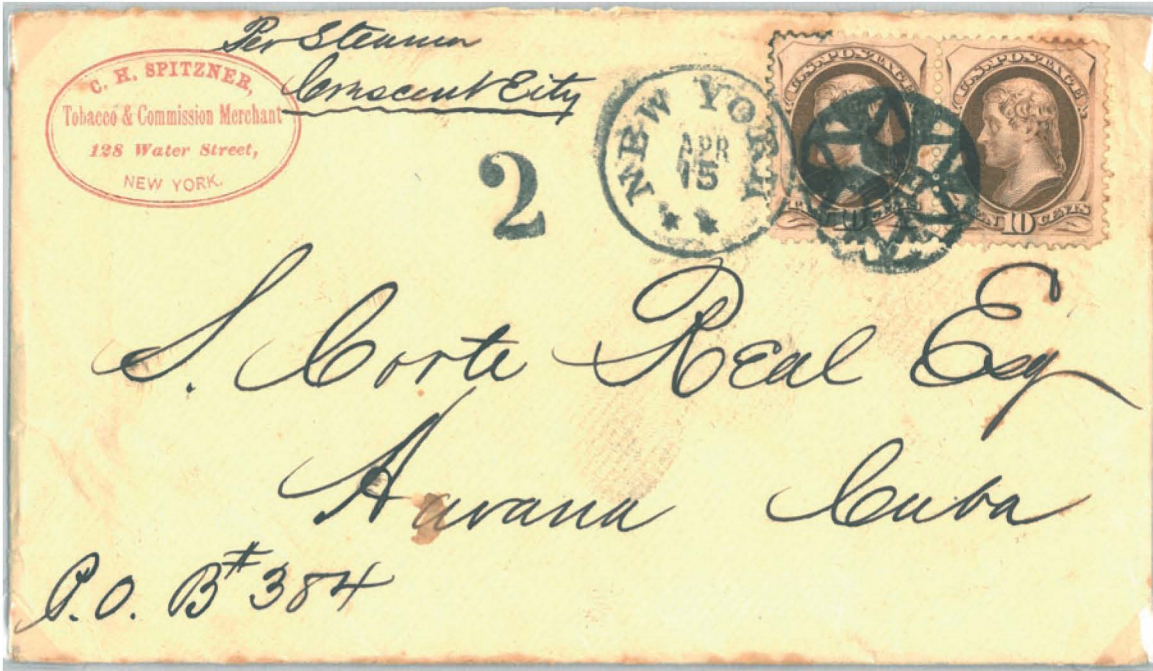 Per Steamer
Crescent City
C. H. SPITZNER,
Tobacco & Commission Merchant
128 Water Street,
NEW YORK.
2
NEW YORK
APR
15
U.S. POSTAGE
U.S. POSTAGE
10
TEN 10 CENTS
S. Corte Real Esq
Havana Cuba
P.O. B# 384